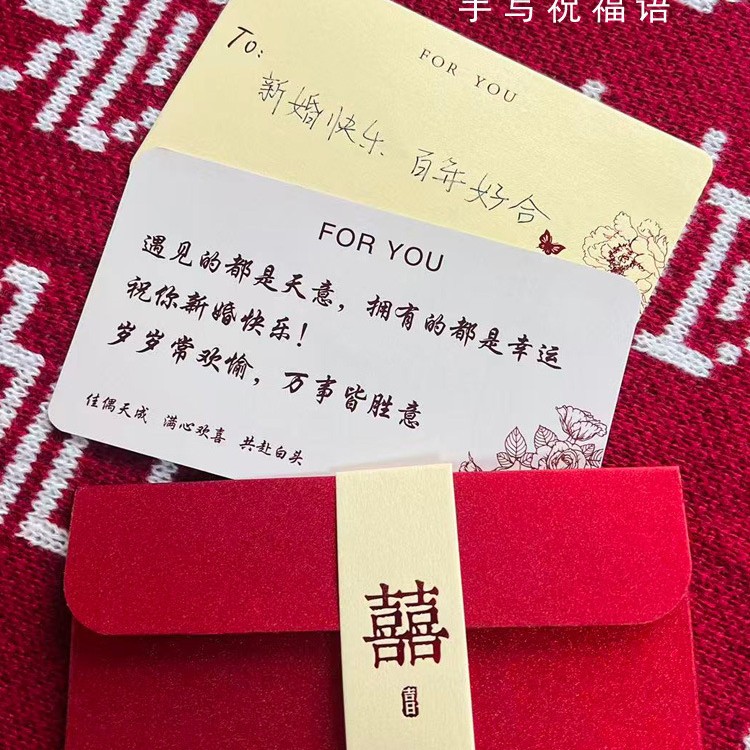 手写祝福语
To:
FOR YOU
新婚快乐 百年好合
FOR YOU
遇见的都是天意，拥有的都是幸运
祝你新婚快乐！
岁岁常欢愉，万事皆胜意
佳偶天成 满心欢喜 共赴白头
囍
吉日